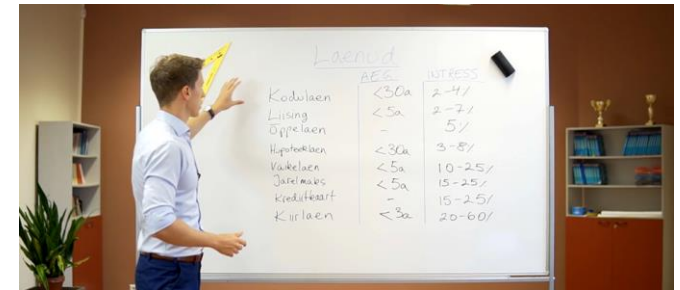 Laenud
AEG INTRESS
Kodulaen <30a 2-4%
Liising <5a 2-7%
Õppelaen - 5%
Hüpoteeklaen <30a 3-8%
Väikelaen <5a 10-25%
Järelmaks <5a 15-25%
Krediitkaart - 15-25%
Kiirlaen <3a 20-60%